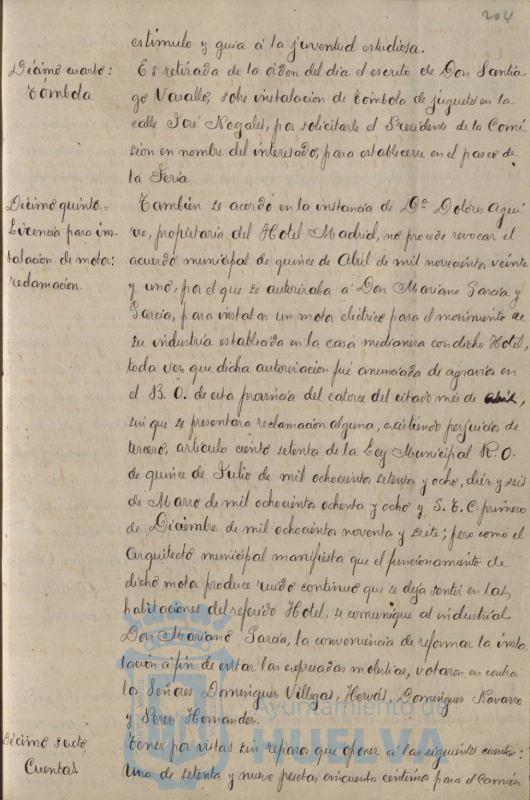 204
estímulo y guia á la juventud estudiosa.
Décimo cuarto:
Tómbola
Es retirada de la órden del dia el escrito de Don Santia
go Vasallo, sobre instalacion de tómbola de juguetes en la
calle José Nogales, por solicitarle el Presidente de la Comi
sion en nombre del interesado, para establecerse en el paseo de
la Feria.
Décimo quinto.=
Licencia para ins-
talacion de motor:
reclamación.
Tambien se acordó en la instancia de Dª Dolores Agui
rre, propietaria del Hotel Madrid, no procede revocar el
acuerdo municipal de quince de Abril de mil novecientos veinte
y uno, por el que se autorizaba á Don Mariano García y
García, para instalar un motor eléctrico para el movimiento de
su industria establecida en la casa medianera con dicho Hotel,
toda vez que dicha autorizacion fué anunciada de agravios en
el B. O. de esta provincia del catorce del citado mes de Abril,
sin que se presentara reclamacion alguna, existiendo perjuicios de
tercero, artículo ciento setenta de la Ley Municipal R.O.
de quince de Julio de mil ochocientos setenta y ocho, diez y seis
de Marzo de mil ochocientos ochenta y ocho y S. T. C. primero
de Diciembre de mil ochocientos noventa y siete; pero como el
Arquitecto municipal manifiesta que el funcionamiento de
dicho motor produce ruido continuo que se deja sentir en las
habitaciones del referido Hotel, se comunique al industrial
Don Mariano García, la conveniencia de reformar la insta
lación á fin de evitar las expresadas molestias, votaron en contra
los Señores Dominguez Villegas, Hervás, Dominguez Navarro
y Perez Hernandez.
Décimo sexto
Cuentas
Tener por vistas sin reparos que oponer á las siguientes cuentas:
Una de setenta y nueve pesetas cincuenta centimos para el Camión
Ayuntamiento de
HUELVA